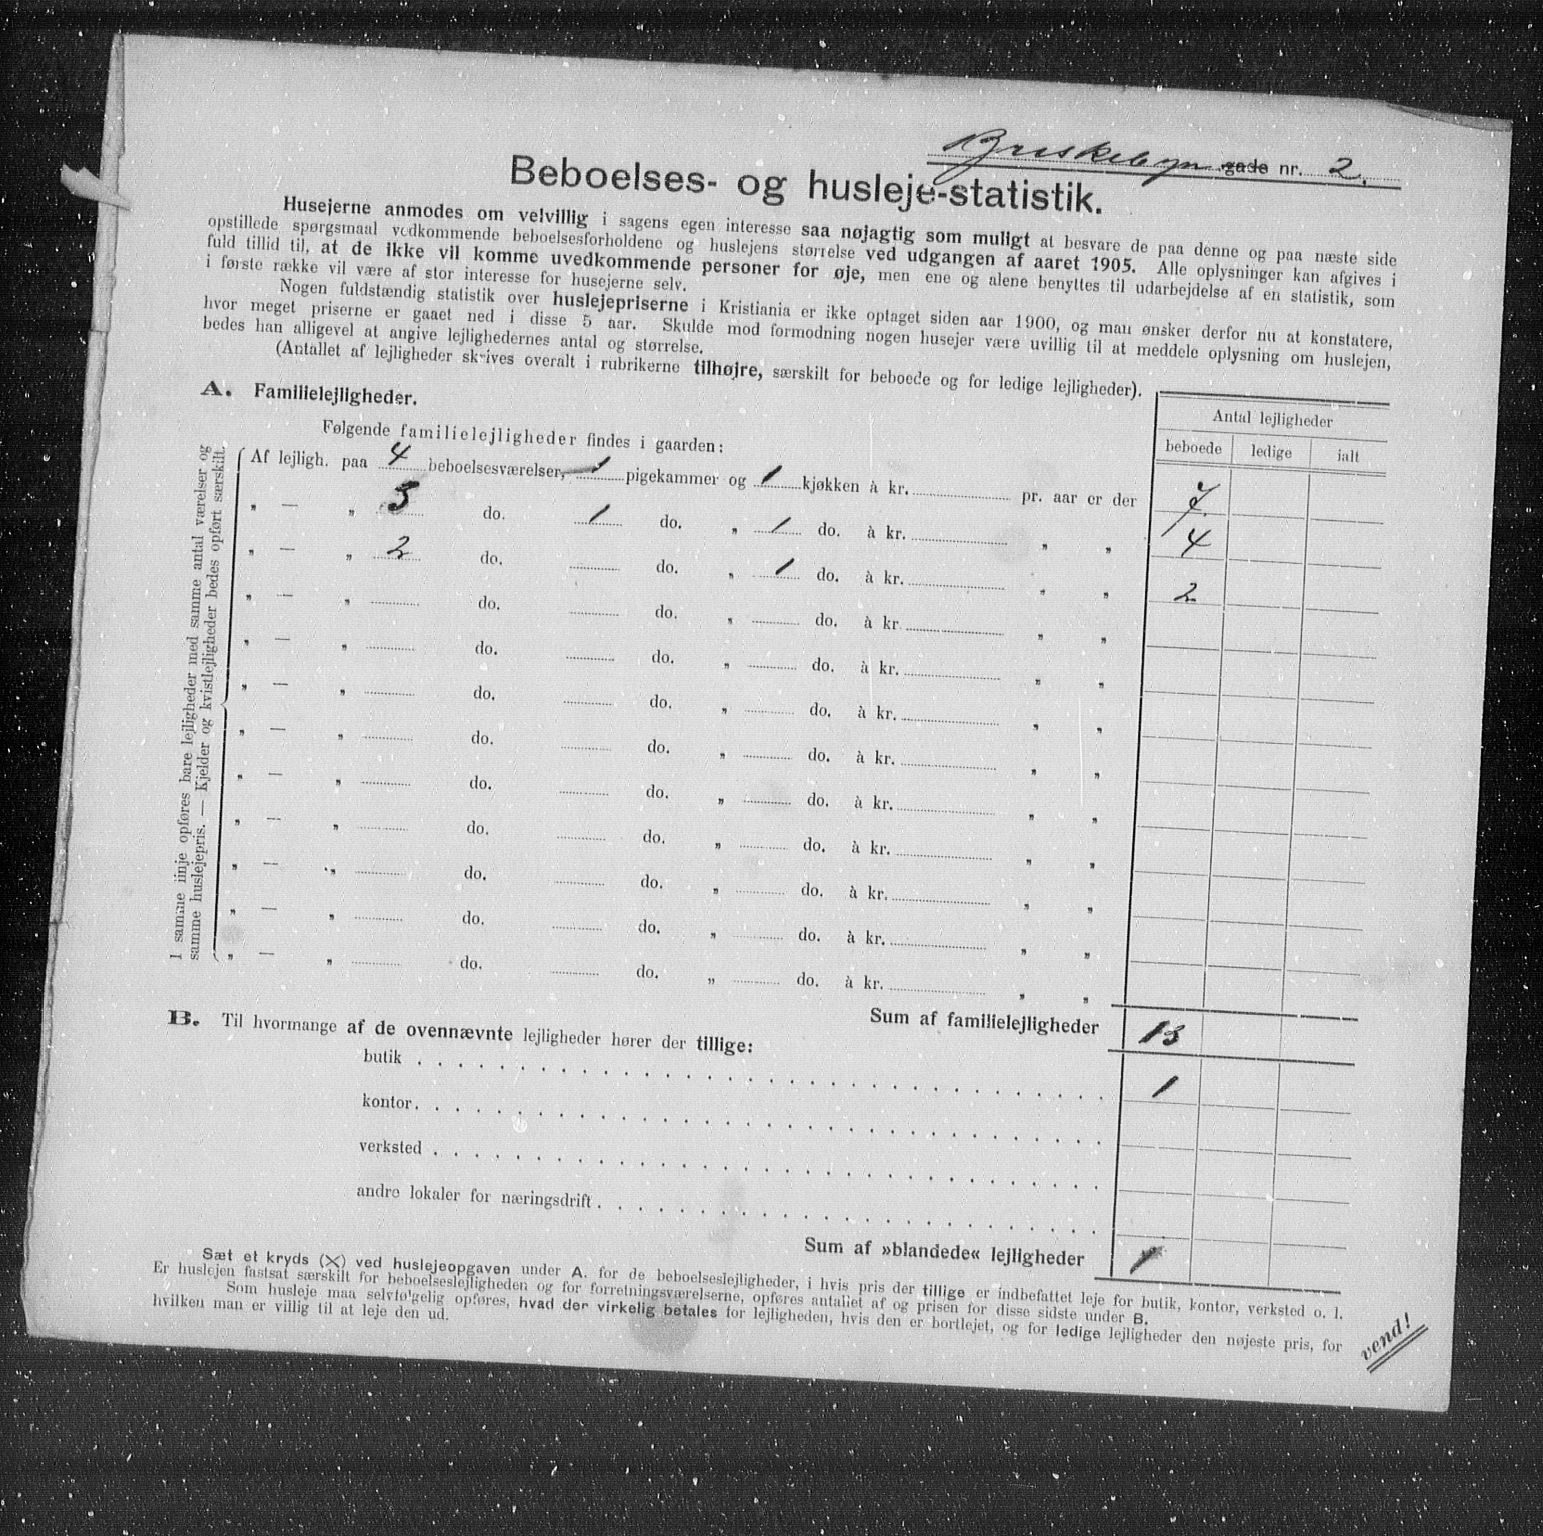 Briskebyn. gade nr. 2.
Beboelses- og husleje-statistik.
Husejerne anmodes om velvillig i sagens egen interesse saa nøjagtig som muligt at besvare de paa denne og paa næste side
opstillede spørgsmaal vedkommende beboelsesforholdene og huslejens størrelse ved udgangen af aaret 1905. Alle oplysninger kan afgives i
fuld tillid til, at de ikke vil komme uvedkommende personer for øje, men ene og alene benyttes til udarbejdelse af en statistik, som
i første række vil være af stor interesse for husejerne selv.
Nogen fuldstændig statistik over huslejepriserne i Kristiania er ikke optaget siden aar 1900, og man ønsker derfor nu at konstatere,
hvor meget priserne er gaaet ned i disse 5 aar. Skulde mod formodning nogen husejer være uvillig til at meddele oplysning om huslejen,
bedes han alligevel at angive lejlighedernes antal og størrelse.
(Antallet af lejligheder skrives overalt i rubrikerne tilhøjre, særskilt for beboede og for ledige lejligheder).
A. Familielejligheder.
Antal lejligheder
beboede ledige ialt
Følgende familielejligheder findes i gaarden:
I samme linje opføres bare lejligheder med samme antal værelser og
samme huslejepris. — Kjelder og kvistlejligheder bedes opført særskilt.
Af lejligh. paa 4 beboelsesværelser, 1 pigekammer og 1 kjøkken à kr. pr. aar er der 7
" — " 3 do. 1 do. " 1 do. à kr. " " 4
" — " 2 do. do. " 1 do. à kr. " " 2
" — " do. do. " do. à kr. " "
" — " do. do. " do. à kr. " "
" — " do. do. " do. à kr. " "
" — " do. do. " do. à kr. " "
" — " do. do. " do. à kr. " "
" — " do. do. " do. à kr. " "
" — " do. do. " do. à kr. " "
" — " do. do. " do. à kr. " "
" — " do. do. " do. à kr. " "
Sum af familielejligheder 13
B. Til hvormange af de ovennævnte lejligheder hører der tillige:
butik 1
kontor
verksted
andre lokaler for næringsdrift
Sum af »blandede« lejligheder 1
Sæt et kryds (X) ved huslejeopgaven under A. for de beboelseslejligheder, i hvis pris der tillige er indbefattet leje for butik, kontor, verksted o. l.
Er huslejen fastsat særskilt for beboelseslejligheden og for forretningsværelserne, opføres antallet af og prisen for disse sidste under B.
Som husleje maa selvfølgelig opføres, hvad der virkelig betales for lejligheden, hvis den er bortlejet, og for ledige lejligheder den nøjeste pris, for
hvilken man er villig til at leje den ud.
vend!